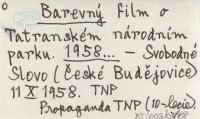 Barevný film o
Tatranském národním
parku. 1958... – Svobodné
Slovo (České Budějovice)
11 X 1958. TNP
Propaganda TNP (IV-lecie).